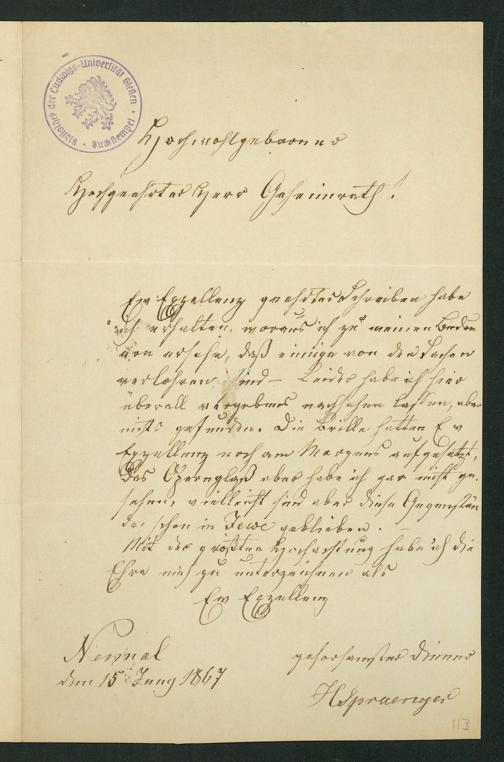 Bibliothek der Ludwigs-Universität Gießen · Buchstempel ·
Hochwohlgeborner
Hochgeehrter Herr Geheimrath!
Ew Exzellenz geehrtes Schreiben habe
ich erhalten, woraus ich zu meinen Bedau
ren ersehe, daß einige von den Sachen
verlohren sind – Leider habe ich hier
überall vergebens nachsehen lassen, aber
nichts gefunden. Die Brille hatten Ew
Exzellenz noch am Morgens aufgesetzt,
das Opernglaß aber habe ich gar nicht ge.
sehen, vielleicht sind aber diese Gegenstän
de schon in Jewe geblieben.
Mit der größten Hochachtung habe ich die
Ehre mich zu unterzeichnen als
Ew Exzellenz
gehorsamster Diener
Nennal
den 15 Juny 1867
H Spraenger
113